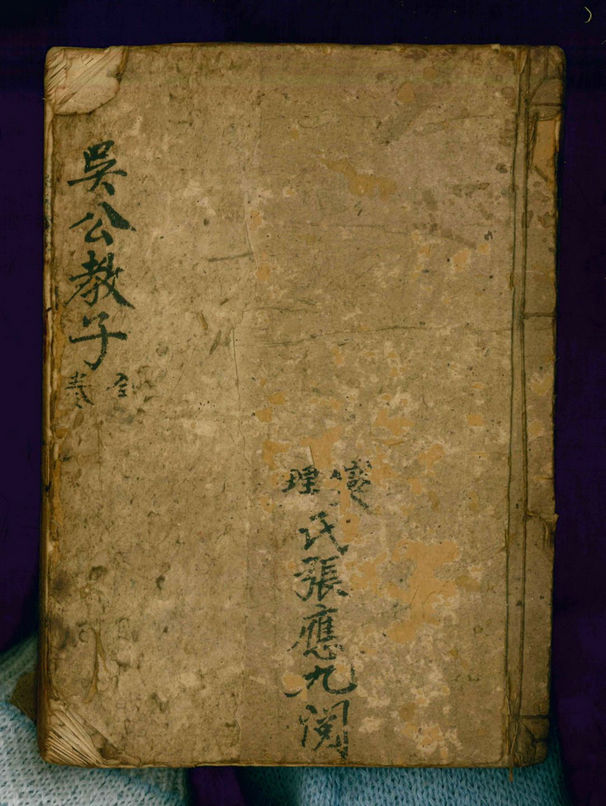 吳公教子
全卷
氏張應九閱